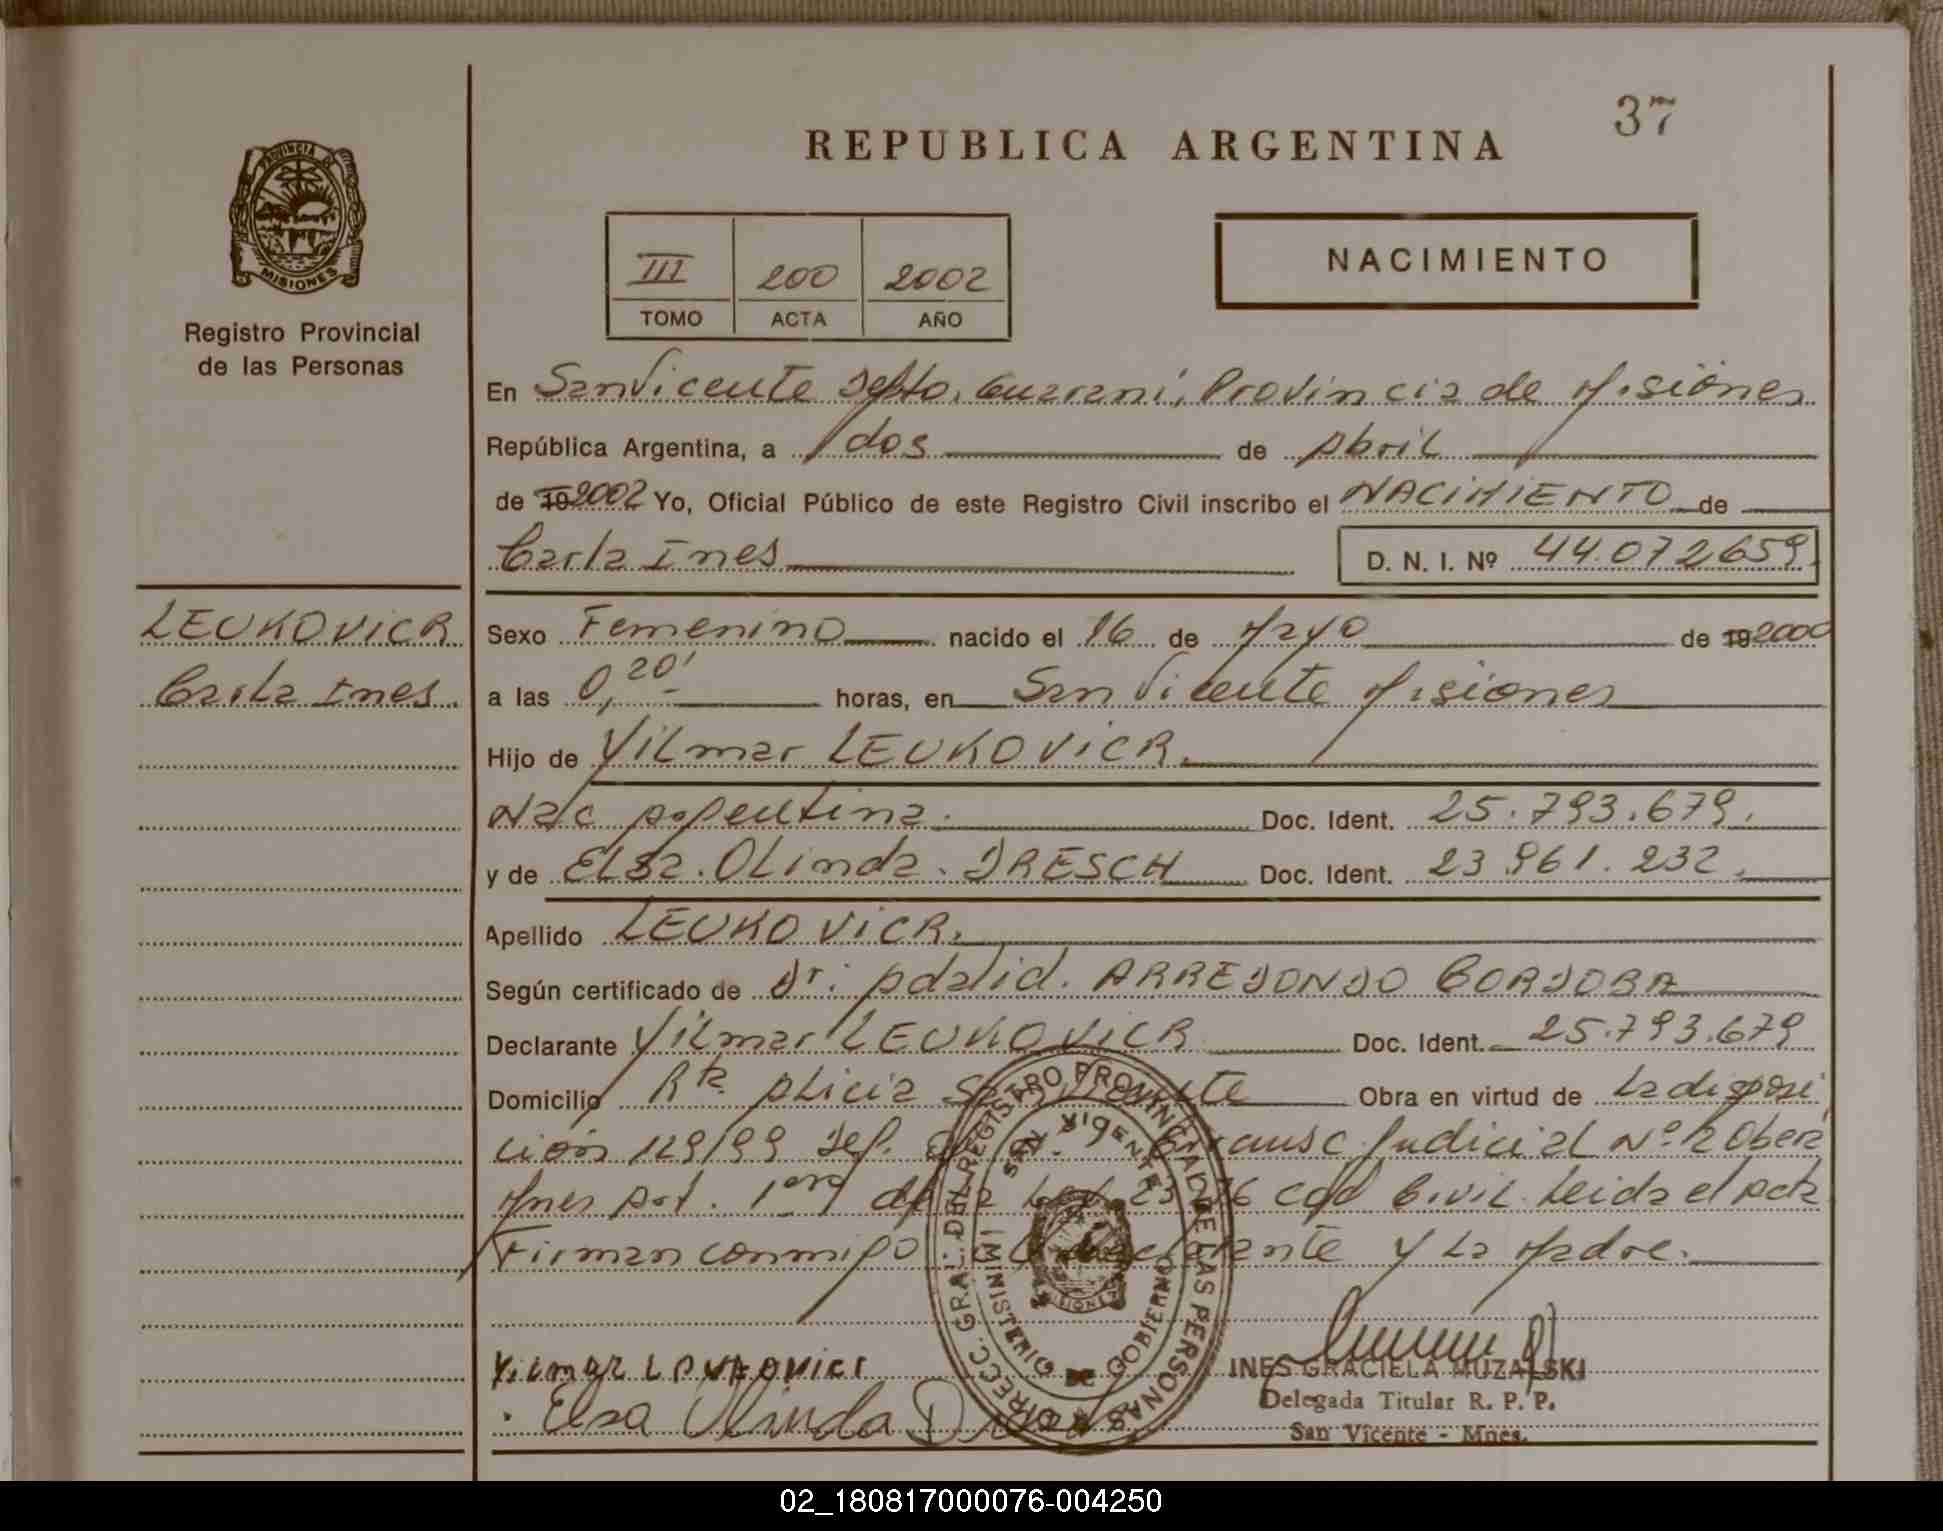 37
REPUBLICA ARGENTINA
PROVINCIA DE
MISIONES
Registro Provincial
de las Personas
III 200 2002
TOMO ACTA AÑO
NACIMIENTO
En San Vicente Depto. Guarani, Provincia de Misiones
República Argentina, a dos de Abril
de 19 2002 Yo, Oficial Público de este Registro Civil inscribo el NACIMIENTO de
Carla Ines D. N. I. Nº 44.072659.
LEUKOVICR
Carla Ines.
Sexo Femenino nacido el 16 de Mayo de 19 2000
a las 0,20' horas, en San Vicente Misiones
Hijo de Vilmar LEUKOVICR.
Nac Argentina. Doc. Ident. 25.793.679.
y de Elsa. Olinda. DRESCH Doc. Ident. 23.961.232.
Apellido LEUKOVICR.
Según certificado de Dr. Adalid. ARREDONDO CORDOBA
Declarante Vilmar LEUKOVICR Doc. Ident. 25.793.679
Domicilio Rta Alicia San Vicente Obra en virtud de la disposi
ción 129/99 Def. Judicial Nº 2 Obera
Mnes Art. 1ero de la Ley Cod Civil. Leida el Acta
Firman conmigo el declarante y la Madre.
DIRECC. GRAL. DEL REGISTRO PROVINCIAL DE LAS PERSONAS
SAN VICENTE
MINISTERIO DE GOBIERNO
MISIONES
Vilmar
Elsa Olinda
INES GRACIELA MUZALSKI
Delegada Titular R. P. P.
San Vicente - Mnes.
02_180817000076-004250